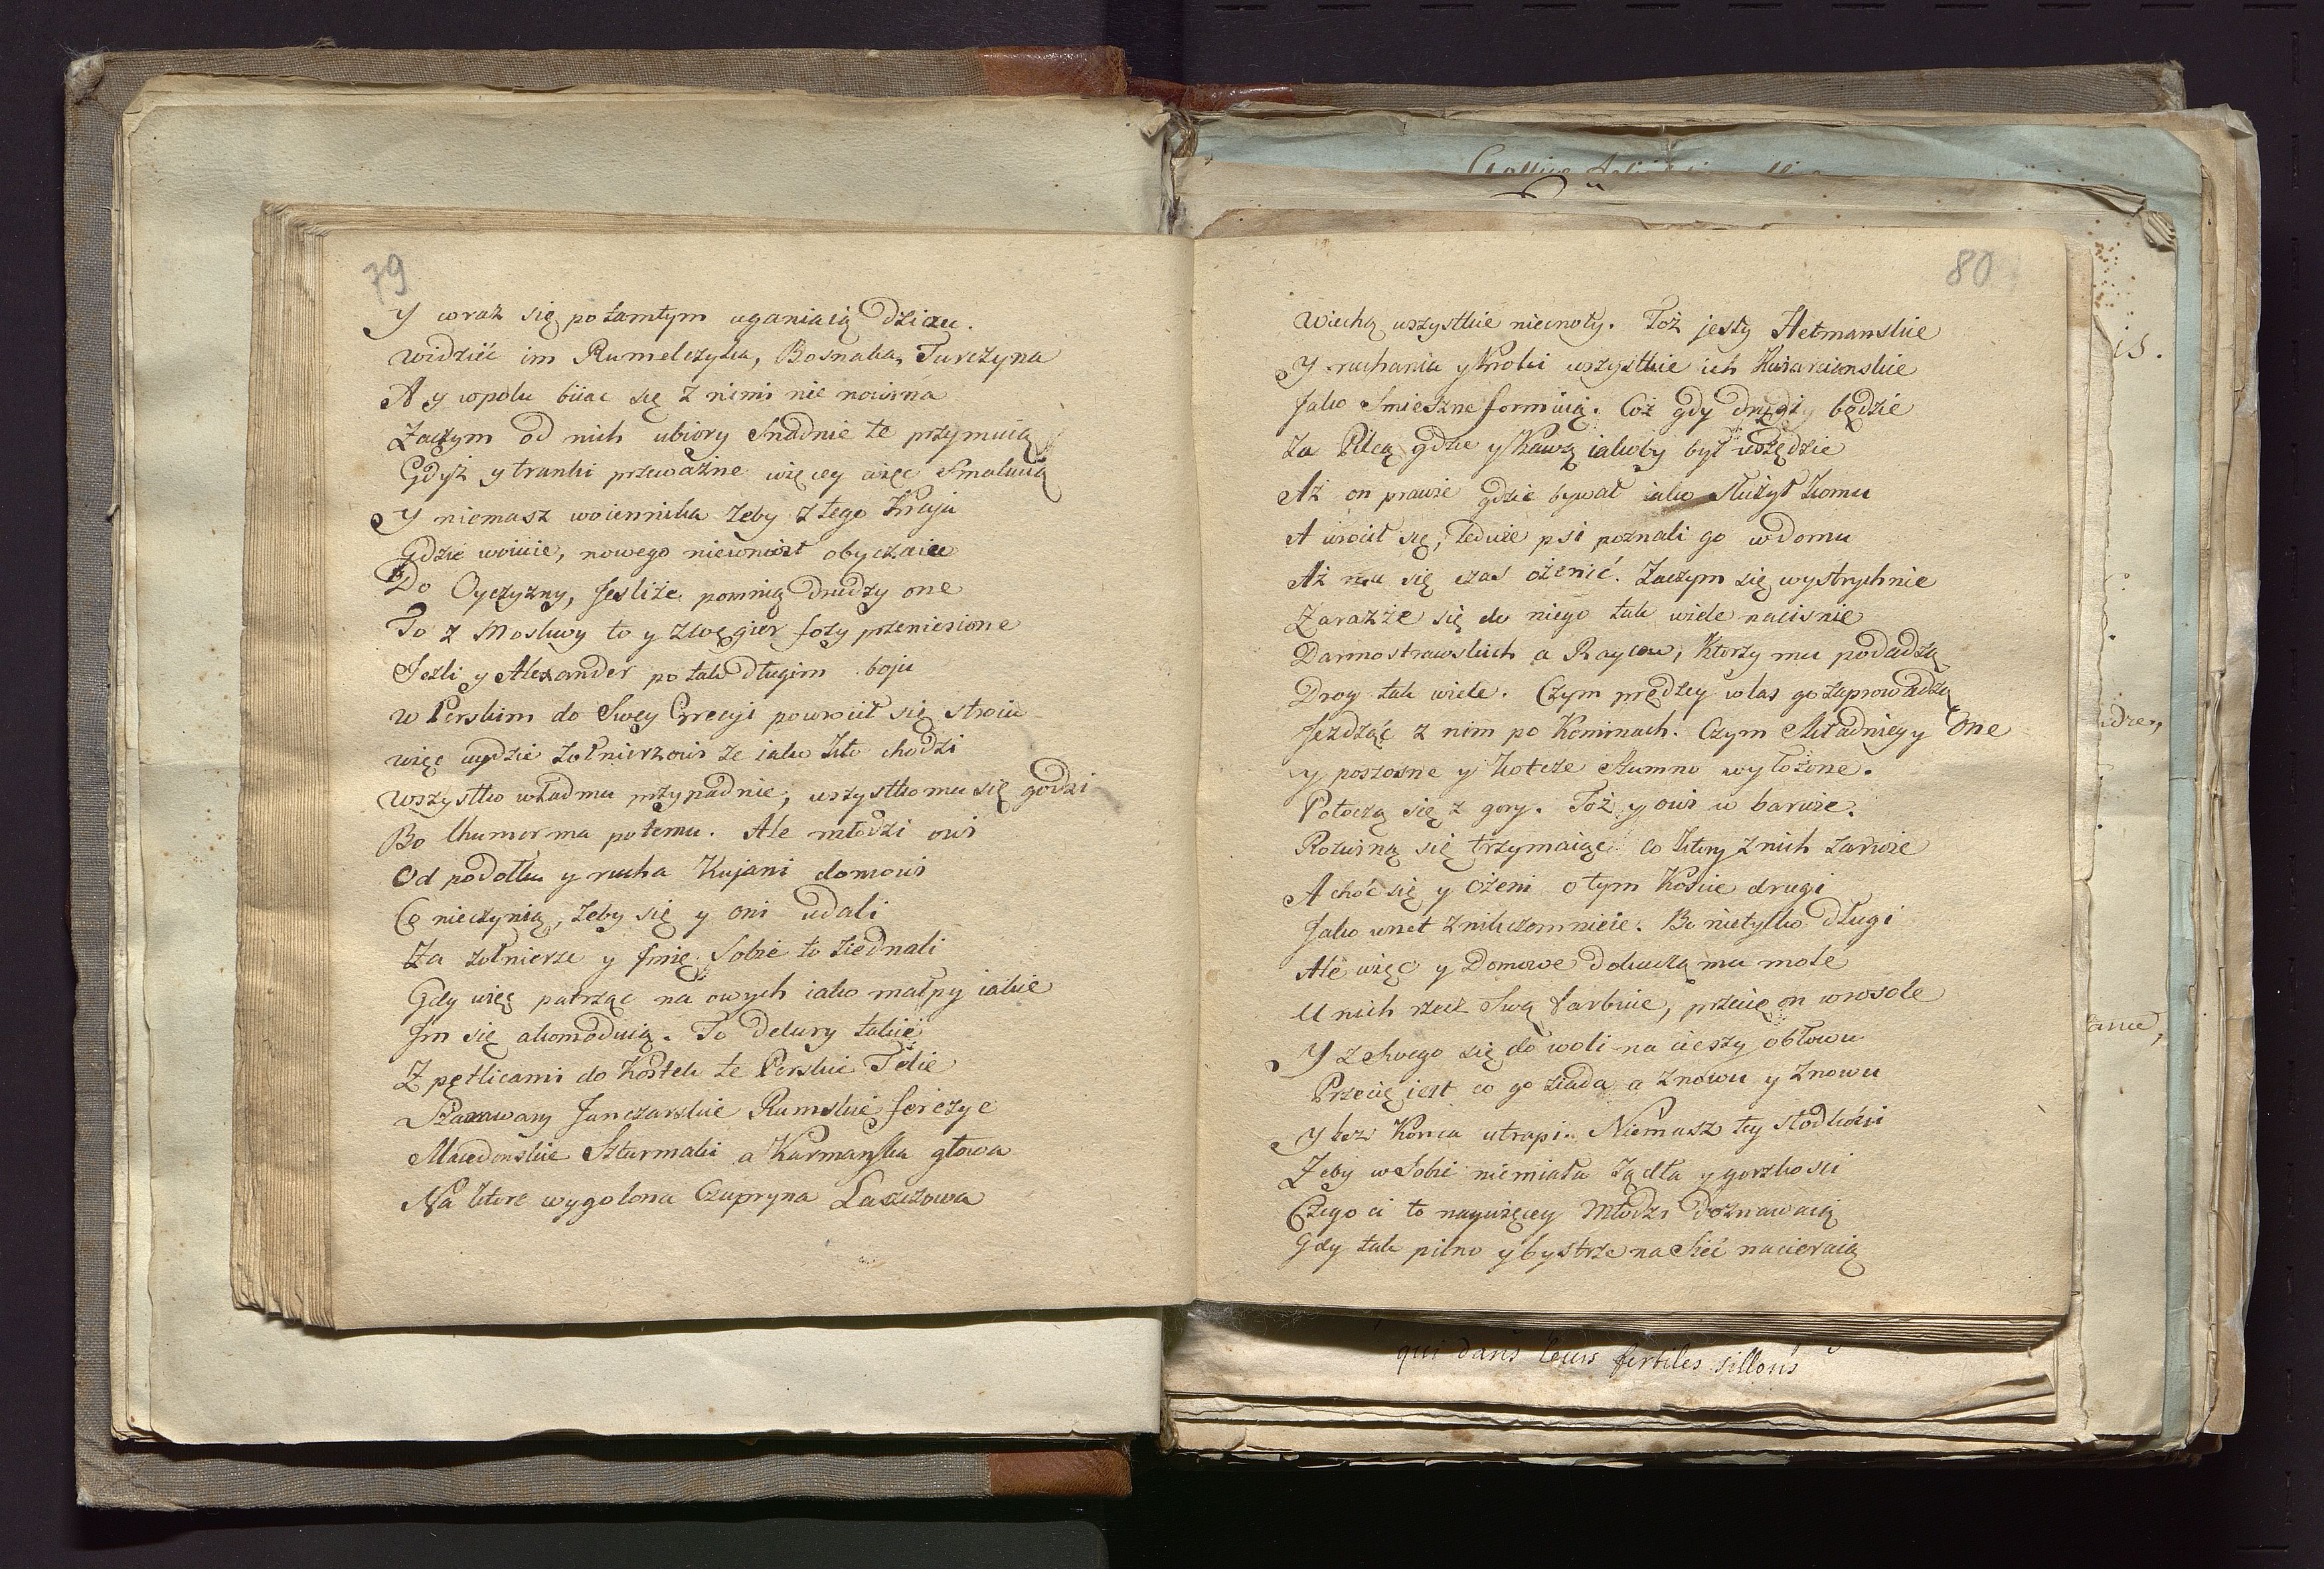 79
Y wraz się po tamtym uganiaią dziau.
Widzieć im Rumelczyka, Bosnaka, Turczyna
A y wpolu biiac się z nimi nie nowina
Zaczym od nich ubiory snadnie te przymuią
Gdyż y trunki przeważne więcey więc smakuią
Y niemasz woiennika żeby z tego Kraju
Gdzie woiuie, nowego niewniosł obyczaiu
Do Oyczyzny, Jesliże pomnią drudzy one
To z Moskwy to y z Węgier fozy przeniesione
Jezli y Alexander po tak długim boju
W Perskim do Swey Grecyi powrucił się stroiu
więc uydzie żołnierzowi że iako kto chodzi
Wszystko władmu przypadnie, wszystko mu się godzi
Bo Chumor ma potemu. Ale młodzi owi
Od podołku y rucha Kujani domowi
Co nieczynią, żeby się y oni udali
Za żołnierze y Jmię Sobie to ziednali
Gdy więc patrząc na owych iako małpy iakie
Jm się akomoduią. To Delury takie
Z pętlicami do Kostek te Perskie Telie
Szarawary Janczarskie Rumskie ferezye
Macedonskie Szturmaki a Karmańska głowa
Na ktore wygolona Czupryna Laszczowa
80
Wiechą wszystkie niecnoty. Toż jesty Hetmanskie
Y ruchania y Kroki wszystkie ich
Jako Smieszne formuią. Coż gdy drugi będzie
Za Pilcą gdzie y Kawzą iakoby był wszędzie
Aż on prawie gdzie bywał iako służył komu
A wrocił się, ledwie psi poznali go w domu
Aż mu się czas ożenić. Zaczym się wystrychnie
Zarazże się do niego tak wiele nacisnie
Darmostrawskich a Raycow, Ktorzy mu podadzą
Drog tak wiele. Czym prędzey w las go zaprowadzą
Jezdząc z nim po Kominach. Czym składniey y One
y poszosne y kotcze szumno wyłożone.
Potoczą się z gory. Toż y owi w barwie.
Rozwiną się trzymaiąc co ktory z nich zarwie
A choć się y ożeni o tym Koście drugi
Jako wnet znikczemnieie. Bo nietylko długi
Ale więc y Domowe dokuczą mu mole
U nich rzecz Swą farbuie, przecię on wrosole
Y z Swego się do woli na cieszy obłowu
Przecię iest co go ziada a znowu y znowu
y bez Konca utrapi. Niemasz tey słodkości
Żeby w Sobie niemiała żądła y gorzkosci
Czego ci to naywięcey Młodzi doznawaią
Gdy tak pilno y bystrze na Sieć nacieraią
qui dans leurs fertiles sillons
is.